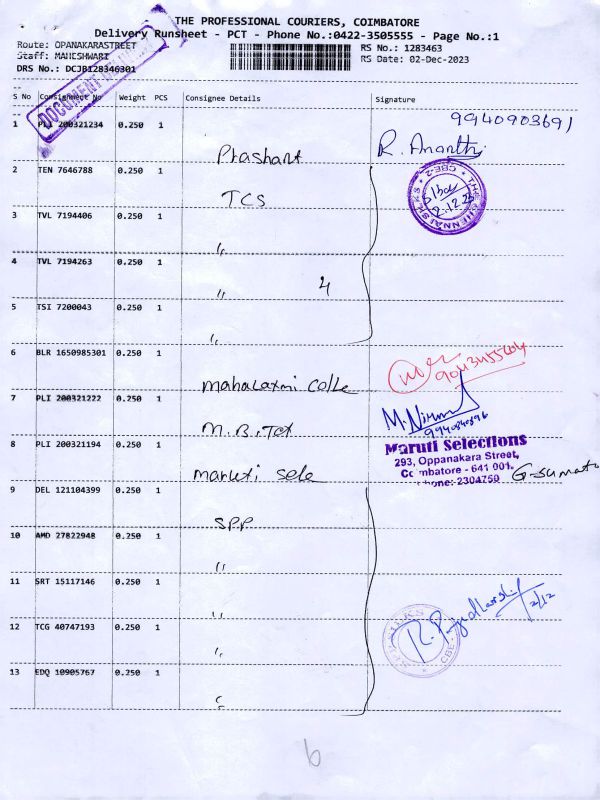 THE PROFESSIONAL COURIERS, COIMBATORE
Delivery Runsheet - PCT - Phone No.:0422-3505555 - Page No.:1
Route: OPANAKARASTREET
Staff: MAHESHWARI
DRS No.: DCJB128346301
RS No.: 1283463
RS Date: 02-Dec-2023
DOCUMENT
S No Consignment No Weight PCS Consignee Details Signature
1 PLI 200321234 0.250 1 Prashant R. Ananth 9940903691
2 TEN 7646788 0.250 1 TCS
THE CHENNAI SILKS CBE-2
2.12.23
3 TVL 7194406 0.250 1 "
4 TVL 7194263 0.250 1 " 4
5 TSI 7200043 0.250 1 "
6 BLR 1650985301 0.250 1 mahalaxmi colle
7 PLI 200321222 0.250 1 M.B.Tex M. Nirmal
8 PLI 200321194 0.250 1 maruti sele
Maruti Selections
293, Oppanakara Street,
Coimbatore - 641 001.
Phone:-2304750
9 DEL 121104399 0.250 1 SPP
10 AMD 27822948 0.250 1 "
11 SRT 15117146 0.250 1 "
12 TCG 40747193 0.250 1 "
2/12
13 EDQ 10905767 0.250 1 "
b